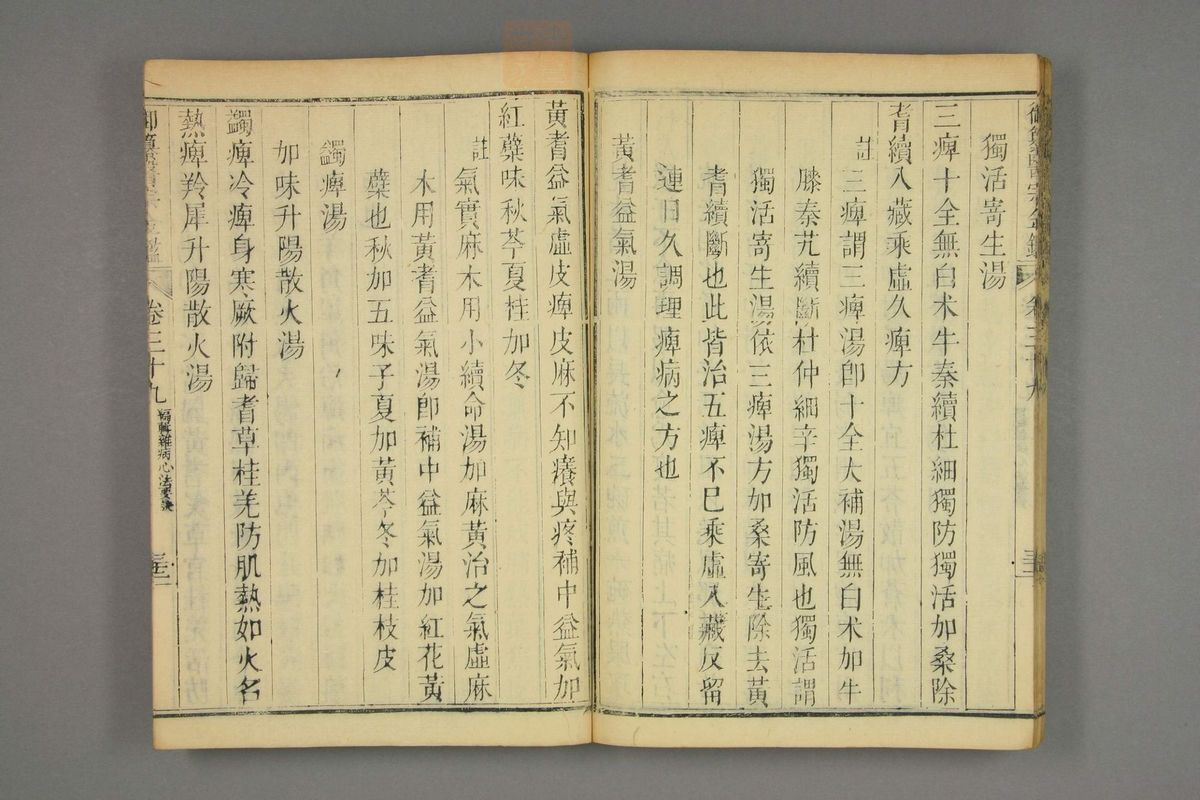 御纂醫宗金鑑 卷三十九
獨活寄生湯
三痺十全無白朮牛秦續杜細獨防獨活加桑除
耆續入藏乘虛久痺方
註三痺謂三痺湯卽十全大補湯無白朮加牛
膝秦艽續斷杜仲細辛獨活防風也獨活謂
獨活寄生湯依三痺湯方加桑寄生除去黃
耆續斷也此皆治五痺不已乘虛入藏反留
連日久調理痺病之方也
黃耆益氣湯
黃耆益氣虛皮痺皮麻不知癢與疼補中益氣加
紅蘗味秋芩夏桂加冬
註氣實麻木用小續命湯加麻黃治之氣虛麻
木用黃耆益氣湯卽補中益氣湯加紅花黃
蘗也秋加五味子夏加黃芩冬加桂枝皮
蠲痺湯
加味升陽散火湯
蠲痺冷痺身寒厥附歸耆草桂羌防肌熱如火名
熱痺羚犀升陽散火湯
御纂醫宗金鑑 卷三十九 編輯雜病心法要訣